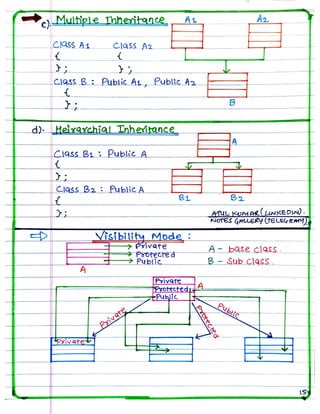 c). Multiple Inheritance
A1 A2
Class A1 Class A2
{ {
}; };
Class B : Public A1, Public A2
{
};
B
d). Heirarchial Inheritance
A
Class B1 : Public A
{
};
Class B2 : Public A
{
};
B1 B2
ATUL KUMAR (LINKEDIN).
NOTES GALLERY (TELEGRAM).
Visibility Mode :
Private
Protected
Public
A - base class.
B - Sub class.
A
Private
Protected A
Public
Private Protected Public
Private
15